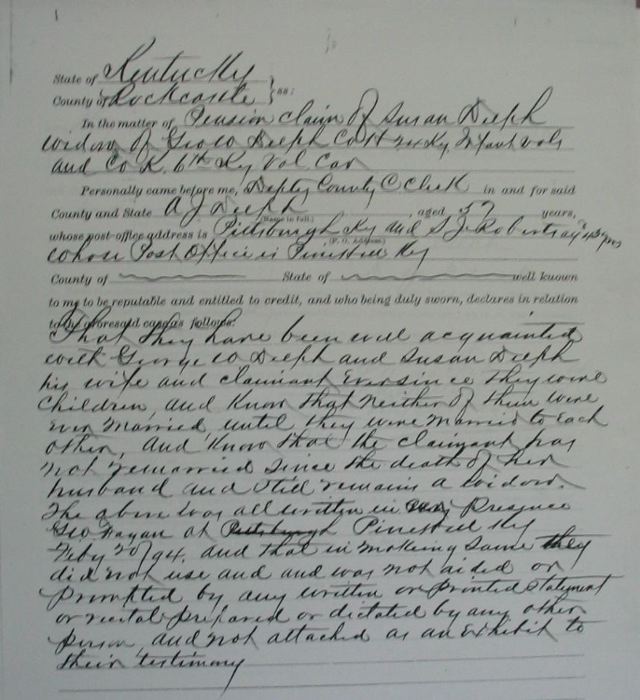 State of Kentucky
County of Rockcastle } ss:
In the matter of Pension claim of Susan Deeph
widow of Geo W Deeph Co H 24 Ky Infant vols
and Co K. 6th Ky Vol Cav
Personally came before me, Depty County C Clerk in and for said
County and State A J Deeph, aged 57 years,
(Name in full.)
whose post-office address is Pittsburgh Ky and S J Roberts age yrs
(P. O. Address.)
whose Post Office is Pinehill Ky
County of State of well known
to me to be reputable and entitled to credit, and who being duly sworn, declares in relation
to the aforesaid case as follows:
That they have been well acquainted
with George W Deeph and Susan Deeph
his wife and claimant Ever since they were
Children, and Know that neither of them were
ever married until they were married to Each
other, and Know that the claimant has
not remarried since the death of her
husband and still remains a widow.
The above was all written in presence
Geo Hagan at Pittsburgh Pinehill Ky
Feby 20/94. and that in making same they
did not use and and was not aided or
prompted by any written or printed statement
or recital prepared or dictated by any other
person, and not attached as an Exhibit to
their testimony